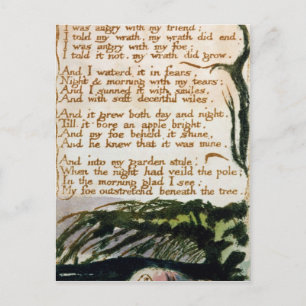 I was angry with my friend;
I told my wrath, my wrath did end.
I was angry with my foe:
I told it not, my wrath did grow.
And I waterd it in fears,
Night & morning with my tears:
And I sunned it with smiles,
And with soft deceitful wiles.
And it grew both day and night,
Till it bore an apple bright.
And my foe beheld it shine,
And he knew that it was mine.
And into my garden stole,
When the night had veild the pole;
In the morning glad I see,
My foe outstretchd beneath the tree.